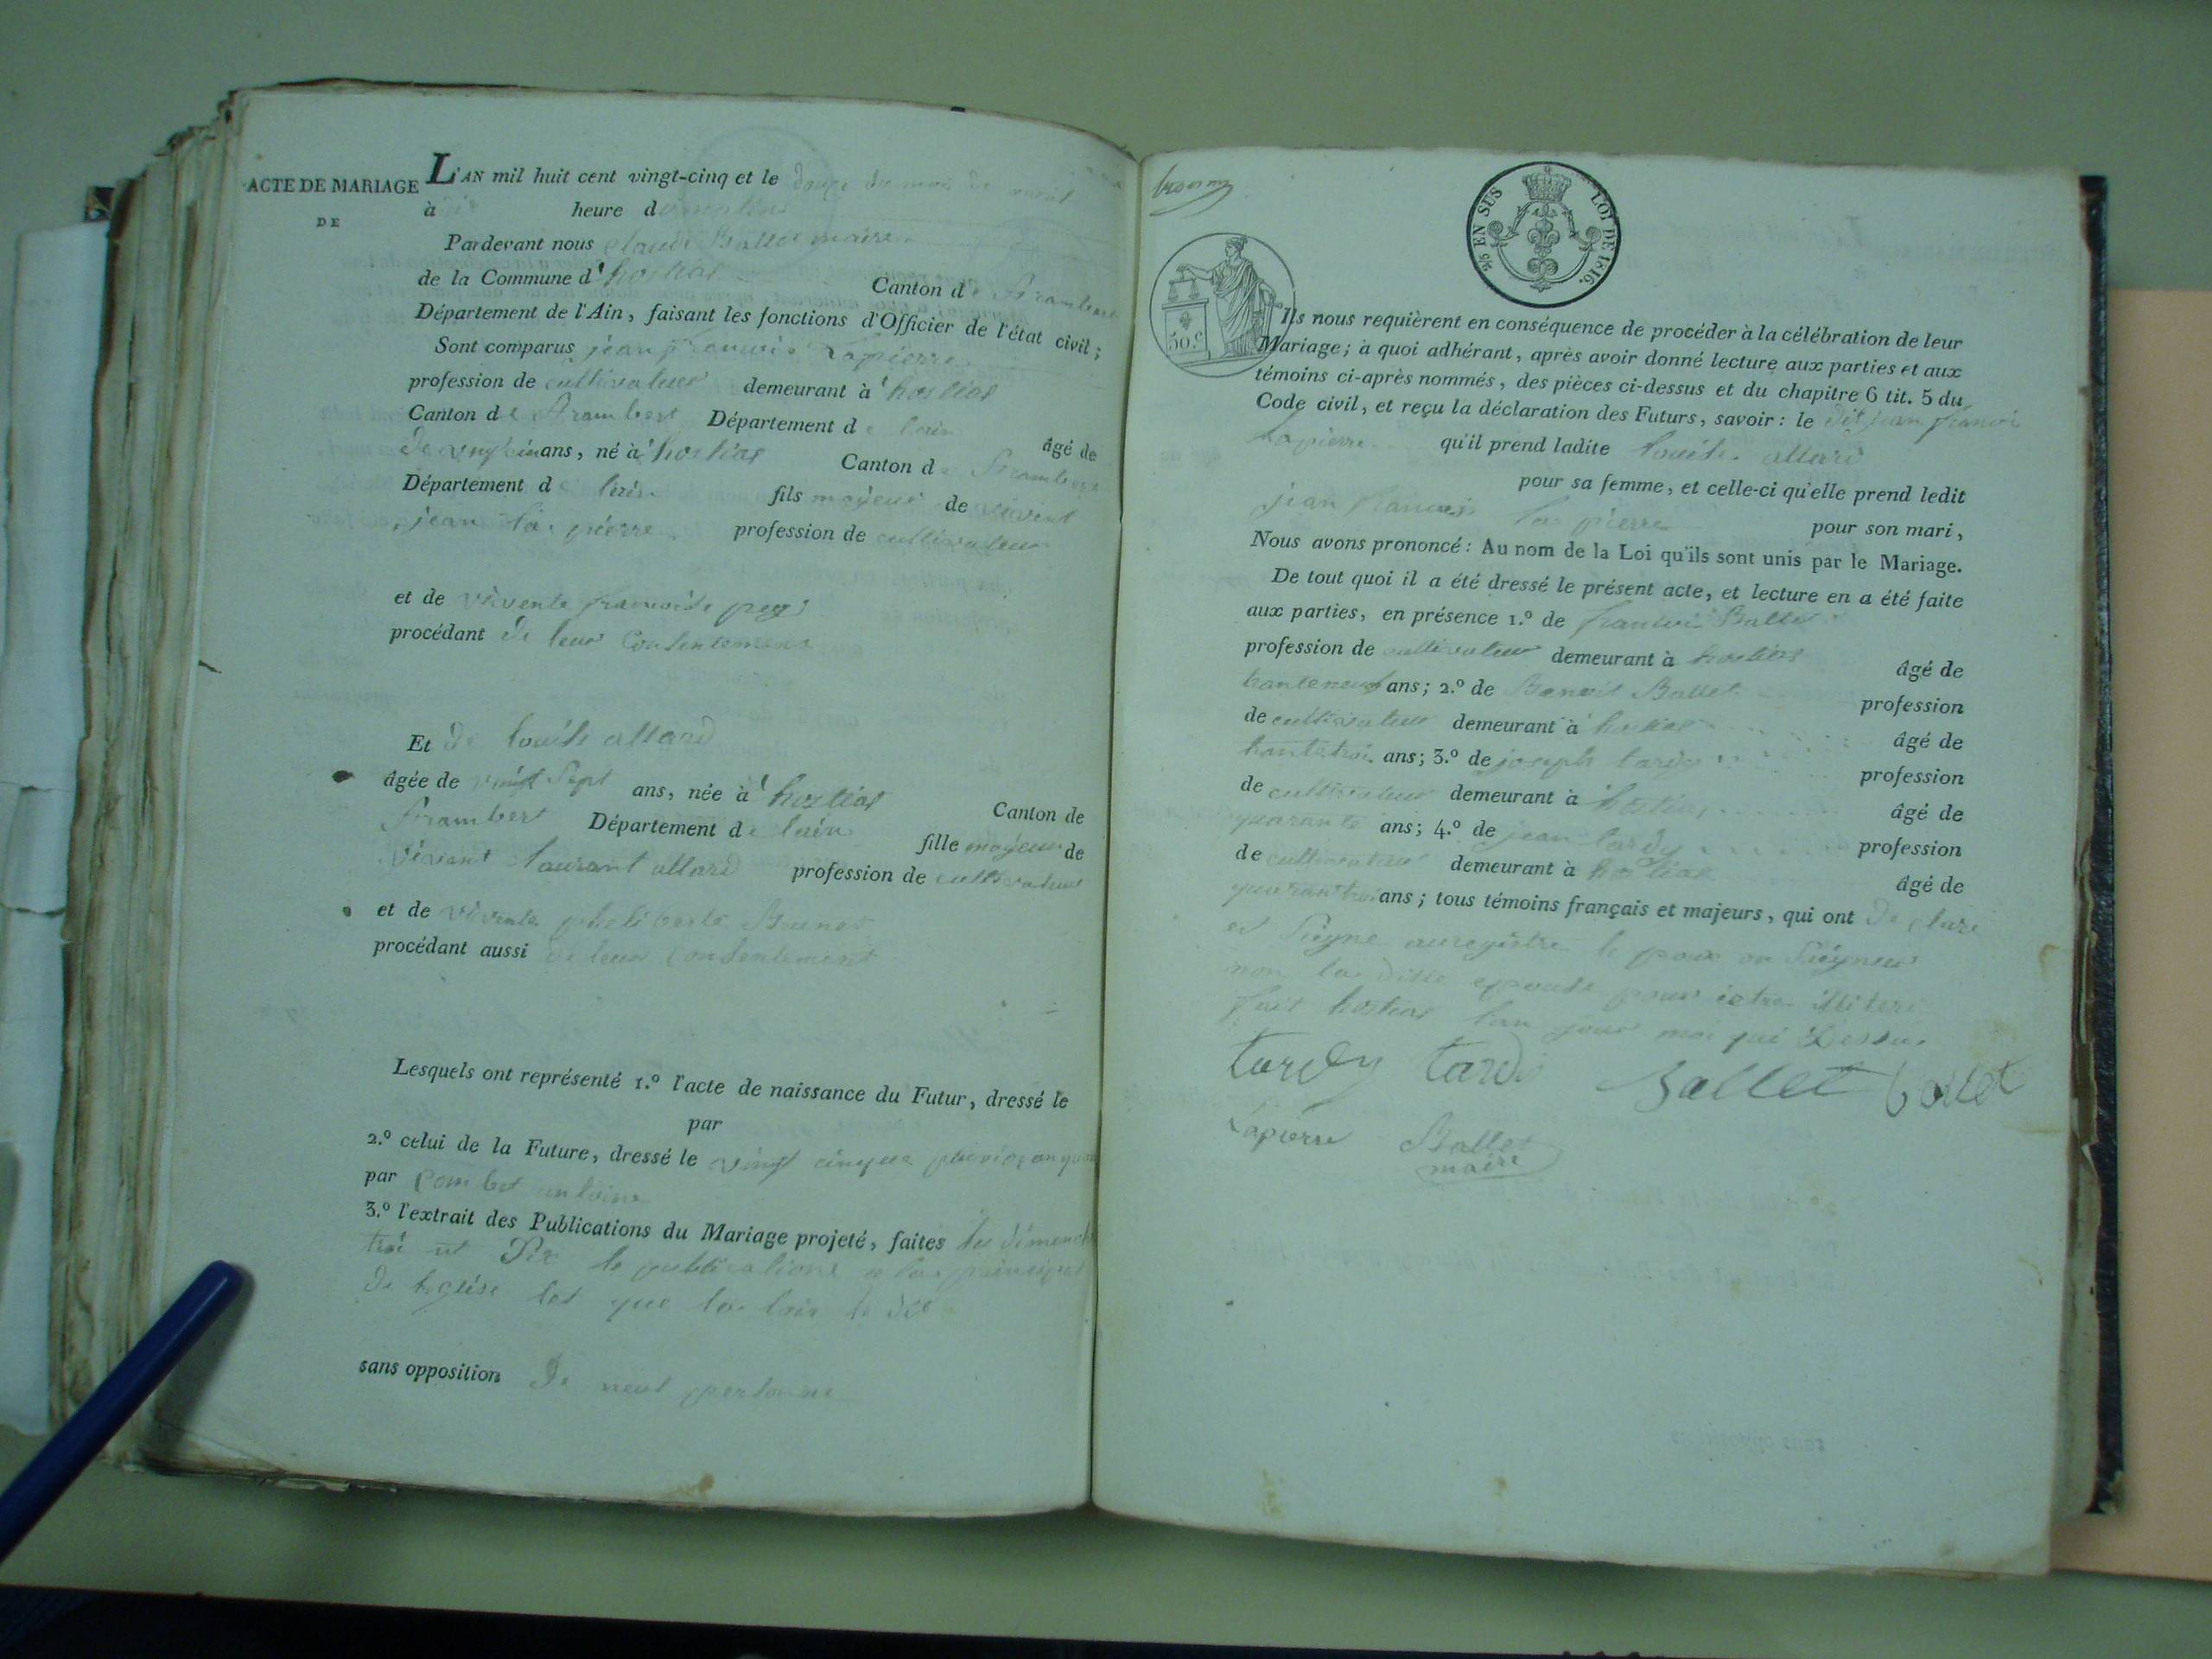 ACTE DE MARIAGE
DE
L'AN mil huit cent vingt-cinq et le douze du mois de avril
à dix heure du matin
Pardevant nous Claude Ballet maire
de la Commune d'hostias Canton de St rambert
Département de l'Ain, faisant les fonctions d'Officier de l'état civil;
Sont comparus jean francois Lapierre
profession de cultivateur demeurant à hostias
Canton de St rambert Département de lain âgé de
ans, né à hostias Canton de St rambert
Département de lain fils majeur de vivent
jean la pierre profession de cultivateur
et de vivente francoise
procédant de leur Consentement
Et de louise allard
âgée de vingt Sept ans, née à hostias Canton de
St rambert Département de lain fille majeur de
vivent laurant allard profession de cultivateur
et de vivente pheliberte Brunet
procédant aussi de leur Consentement
Lesquels ont représenté 1.º l'acte de naissance du Futur, dressé le
par
2.º celui de la Future, dressé le vingt cinque
par Combet antoine
3.º l'extrait des Publications du Mariage projeté, faites les dimenche
troi et Dix le publications a la principal
de Eglise tel que la lois le dit
sans opposition de neul personne
9/6 EN SUS LOI DE 1816.
50.c
Ils nous requièrent en conséquence de procéder à la célébration de leur
Mariage; à quoi adhérant, après avoir donné lecture aux parties et aux
témoins ci-après nommés, des pièces ci-dessus et du chapitre 6 tit. 5 du
Code civil, et reçu la déclaration des Futurs, savoir: le dit jean francoi
Lapierre qu'il prend ladite louise allard
pour sa femme, et celle-ci qu'elle prend ledit
jean francois la pierre pour son mari,
Nous avons prononcé: Au nom de la Loi qu'ils sont unis par le Mariage.
De tout quoi il a été dressé le présent acte, et lecture en a été faite
aux parties, en présence 1.º de francoi Ballet
profession de cultivateur demeurant à hostias âgé de
tranteneuf ans; 2.º de Benoit Ballet profession
de cultivateur demeurant à hostias âgé de
trantetroi ans; 3.º de joseph tardy profession
de cultivateur demeurant à hostias âgé de
quarante ans; 4.º de jean tardy profession
de cultivateur demeurant à hostias âgé de
quarantroi ans; tous témoins français et majeurs, qui ont de clare
et Signe auregistre le poux on Signeur
non la ditte epouse pour ietre illitere
fait hostias lan jour moi qui Dessus
tardy tardi Ballet ballet
Lapierre Ballet
maire